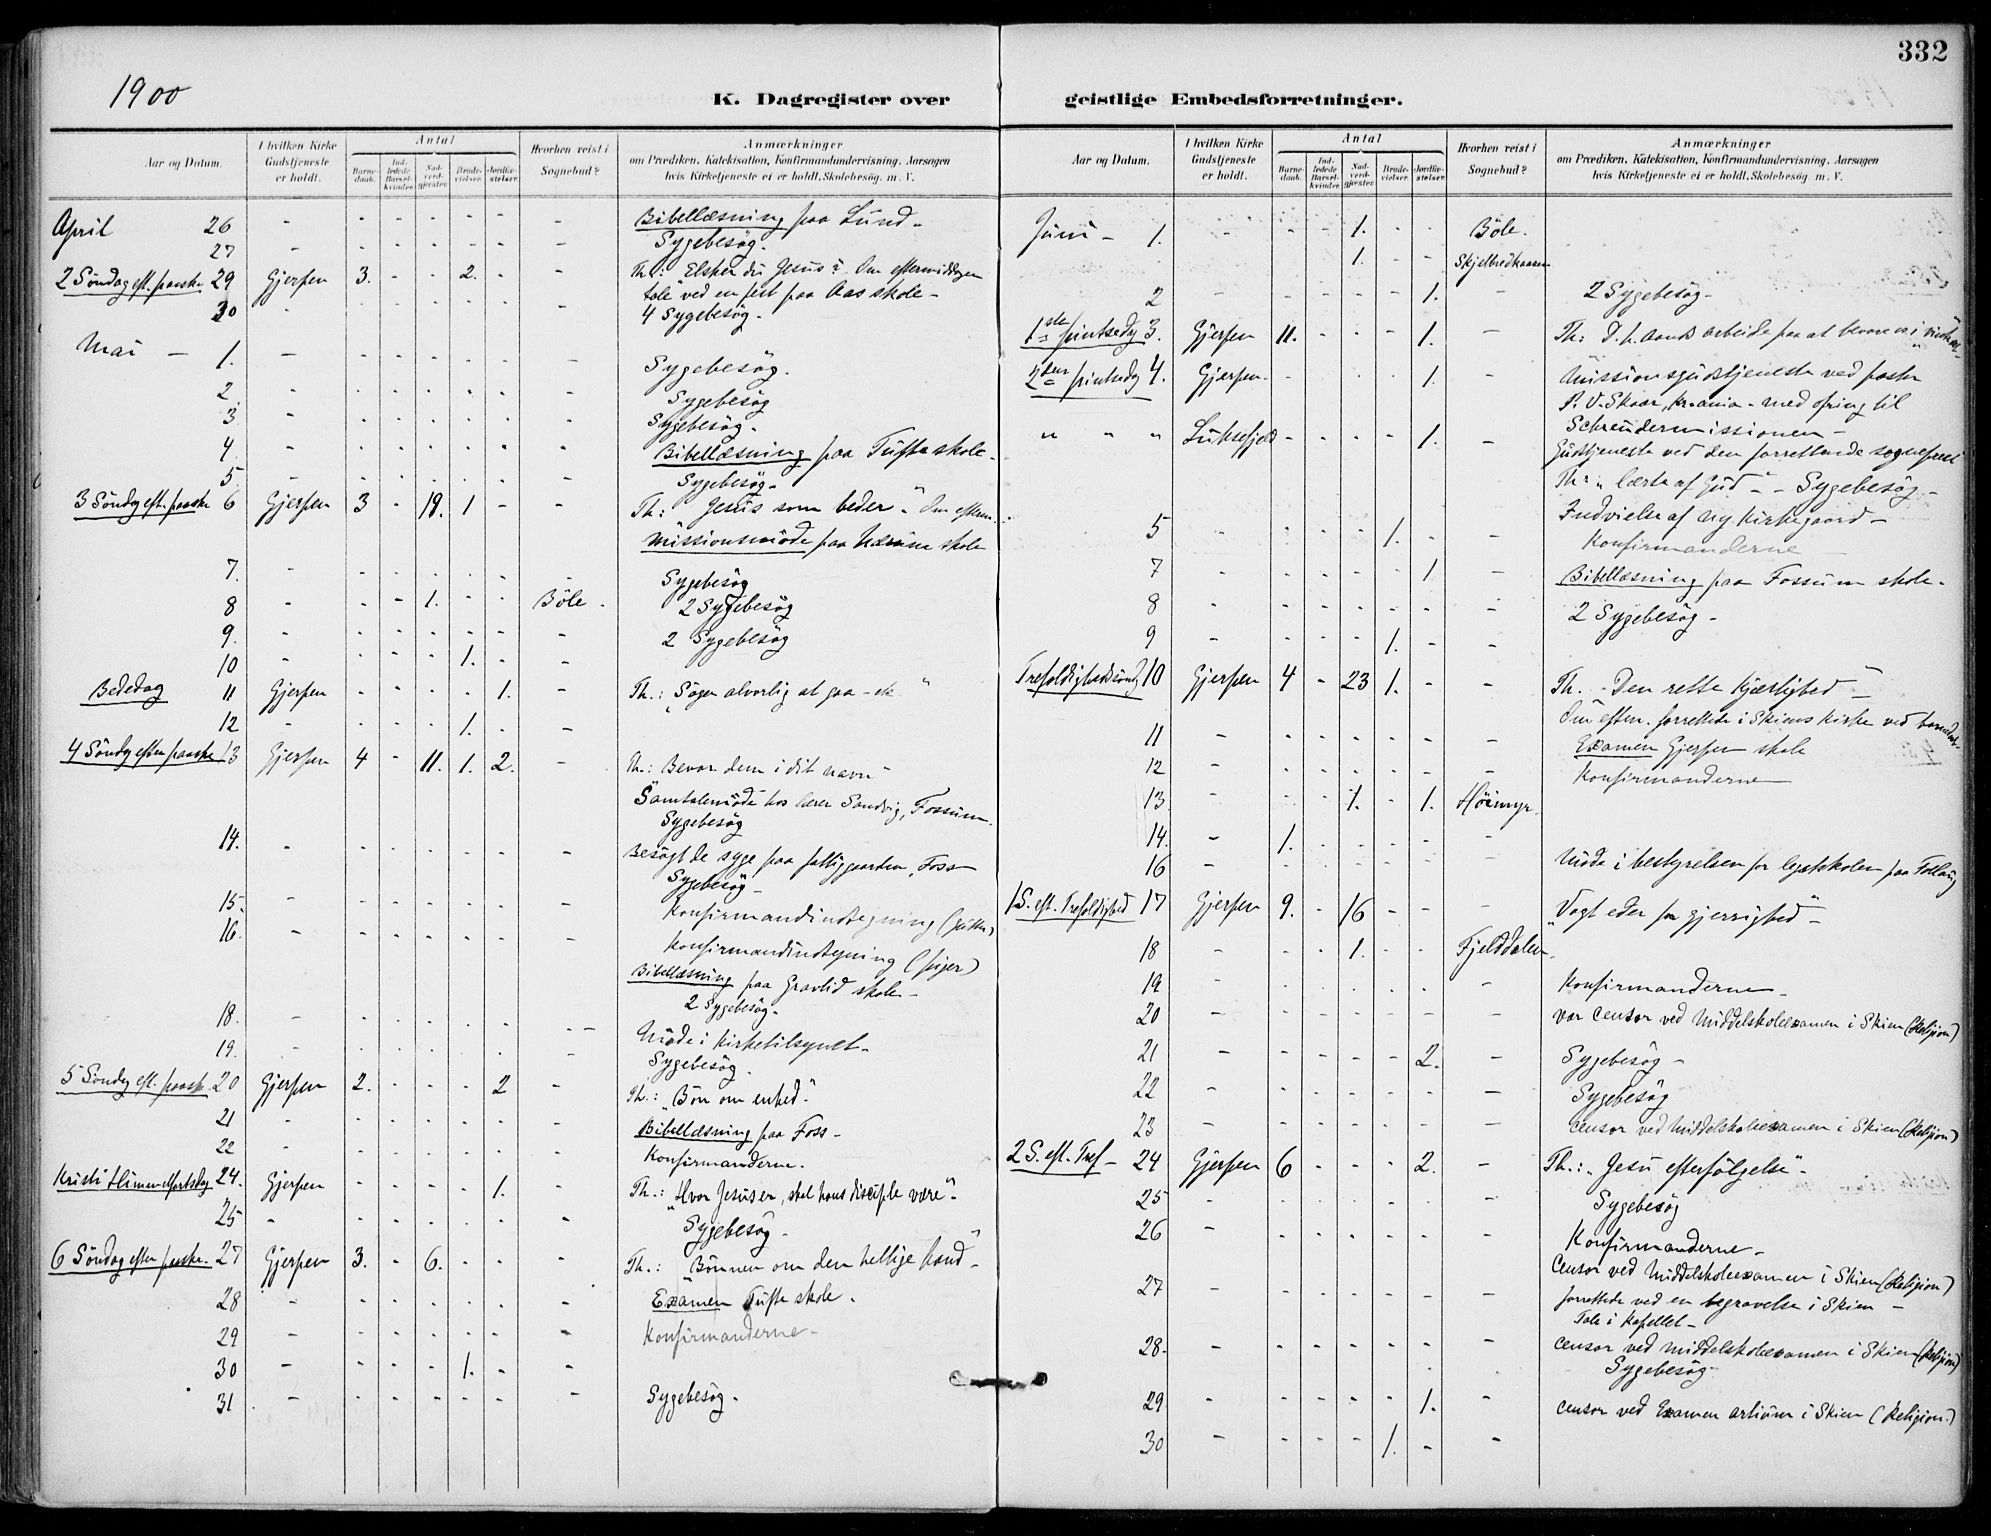 332
1900
K. Dagregister over
Aar og Datum.
I hvilken Kirke Gudstjeneste er holdt.
Antal
Barne-daab.
Ind-ledede Barsel-kvinder.
Nad-verd-gjester.
Brude-vielser.
Jordfæ-stelser.
Hvorhen reist i Sognebud?
Anmærkninger
om Prædiken, Katekisation, Konfirmandundervisning, Aarsagen
hvis Kirketjeneste ei er holdt, Skolebesøg m. V.
April 26 - - - - - - - Bibellæsning paa Lund -
27 - - - - - - - Sygebesøg.
2 Söndag eft. paaske 29 Gjerpen 3. - - 2. - - Th.: Elsker du Jesus? Om eftermiddagen
tale ved en fest paa Aas skole -
30 - - - - - - - 4 Sygebesøg.
Mai - 1. - - - - - - - Sygebesøg.
2. - - - - - - - Sygebesøg
3. - - - - - - - Sygebesøg.
4. - - - - - - - Bibellæsning paa Tufte skole.
5. - - - - - - - Sygebesøg.
3 Söndag eft. paaske 6 Gjerpen 3 - 19. 1 - - Th: Jesus som beder. Om efterm.
Missionsmöde paa skole
7. - - - - - - - Sygebesøg
8 - - - 1. - - Böle. 2 Sygebesøg
9. - - - - - - - 2 Sygebesøg
10 - - - - 1. - -
Bededag 11 Gjerpen - - - - 1. - Th.: Søger alvorlig at gaa - "
12 - - - - 1. - -
4 Söndag efter paaske 13 Gjerpen 4 - 11. 1. 2. - Th.: Bevar dem i dit navn"
Samtalemöde hos lærer Sandvig, Fossum.
Sygebesøg
14. - - - - - - - Besögt de syge paa fattiggaarden, Foss
Sygebesøg -
15. - - - - - - - Konfirmandindtegning (gutter)
16. - - - - - - - Konfirmandindtegning (piger)
Bibellæsning paa Gravlid skole -
2 Sygebesøg.
18. - - - - - - - Möde i kirketilsynet.
19. - - - - - - - Sygebesøg.
5 Söndag eft. paaske 20 Gjerpen 2. - - - 2 - Th.: „Bön om enhed."
21 - - - - - - - Bibellæsning paa Foss -
22 - - - - - - - Konfirmanderne.
Kristi Himmelfartsdag 24. Gjerpen - - - - 1. - Th.: „Hvor Jesus er, skal hans disciple være".
25 - - - - - - - Sygebesøg -
6 Söndag efter paaske. 27 Gjerpen 3. - 6. - - - Th.: „Bönnen om den hellige Aand" -
28 - - - - - - - Examen Tufte skole.
29 - - - - - - - Konfirmanderne -
30 - - - - 1. - -
31 - - - - - - - Sygebesøg.
geistlige Embedsforretninger.
Aar og Datum.
I hvilken Kirke Gudstjeneste er holdt.
Antal
Barne-daab.
Ind-ledede Barsel-kvinder.
Nad-verd-gjester.
Brude-vielser.
Jordfæ-stelser.
Hvorhen reist i Sognebud?
Anmærkninger
om Prædiken, Katekisation, Konfirmandundervisning, Aarsagen
hvis Kirketjeneste ei er holdt, Skolebesøg m. V.
Juni - 1. - - - 1. - - Böle.
1. - - Skjelbredkaasen
2 - - - - - 1. 2 Sygebesøg -
1ste pintsedag 3. Gjerpen 11. - - - 1. - Th: D. h. aands arbeide paa at bevare os i
2den pintsedag 4. Gjerpen. - - - - 1. - Missionsgudstjeneste ved pastor
P. V. Skaar, Kr.ania - med ofring til
Schreudermissionen -
" " " Luksefjeld - - - - 1. - Gudstjeneste ved den forrettende sogneprest
Th: „ lærte af Gud" - - Sygebesøg -
Indvielse af ny kirkegaard -
5 - - - - 1. - - Konfirmanderne
7 - - - - - 1 - Bibellæsning paa Fossum skole.
8 - - - - - - - 2 Sygebesøg -
9 - - - - 1. - -
Trefoldighedssöndag 10 Gjerpen 4 - 23 1. - - Th. - Den rette kjærlighed -
Om efterm. forrettede i Skiens kirke ved
11 - - - - - - - Examen Gjerpen skole
12 - - - - - - - Konfirmanderne
13 - - - 1. - 1. Höimyr
14. - 1. - - - - -
16 - - - - - - - Möde i bestyrelsen for legatskolen paa
1 S. eft. Trefoldighed 17 Gjerpen 9. - 16 - - - „Vogt eder for gjerrighed" -
18 - - - 1. - - Fjelddalen
19 - - - - - - - Konfirmanderne -
20 - - - - - - - var censor ved Middelskoleexamen i Skien (Religion)
21 - - - - - 2. - Sygebesøg -
22 - - - - - - - Sygebesøg
23 - - - - - - - censor ved Middelskoleexamen i Skien (Religion)
2 S. eft. Tref - 24 Gjerpen 6 - - - 2. - Th.: „Jesu efterfölgelse".
25 - - - - - - - Sygebesøg
26 - - - - - - - Konfirmanderne -
27 - - - - - - - Censor ved Middelskoleexamen i Skien (Religion)
forrettede ved en begravelse i Skien -
Tale i kapellet -
28. - - - - - - - censor ved Middelskoleexamen i Skien (Religion)
Sygebesøg
29 - - - - - 1. - censor ved Examen artium i Skien (Religion.)
30 - - - - 1. - -